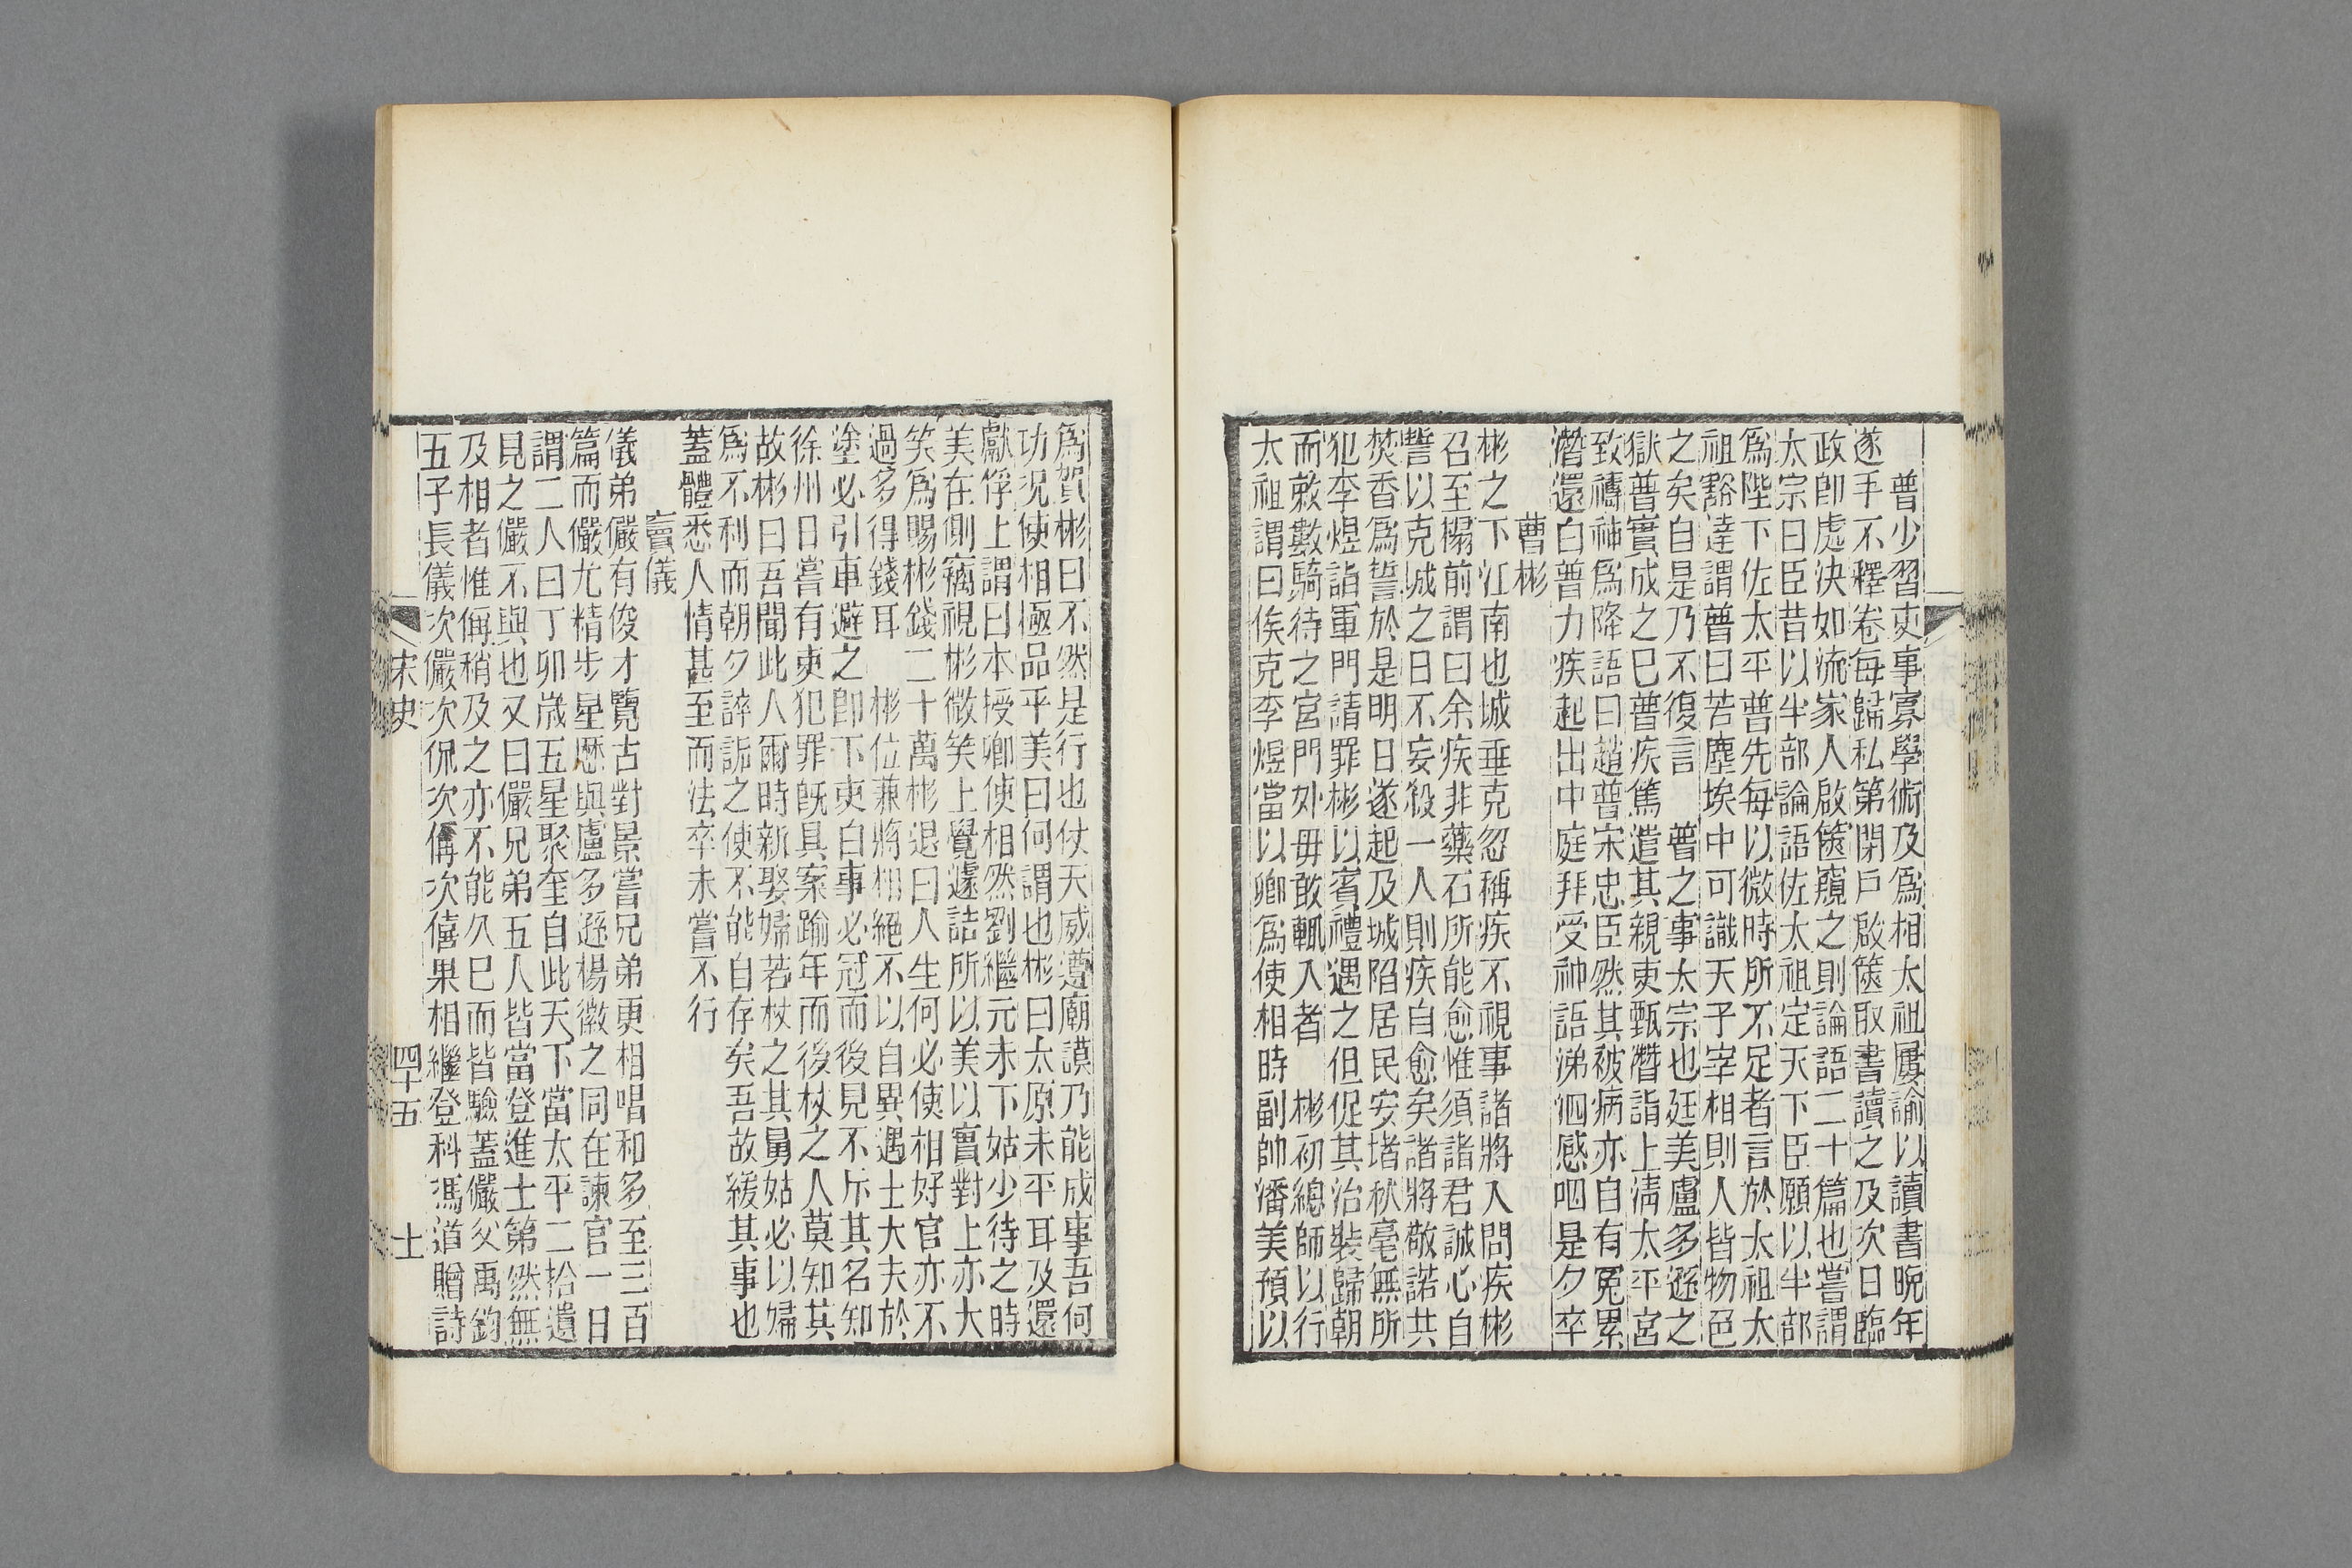 普少習吏事寡學術及爲相太祖屢諭以讀書晩年
遂手不釋卷每歸私第閉戶啟篋取書讀之及次日臨
政卽處決如流家人啟篋窺之則論語二十篇也嘗謂
太宗曰臣昔以半部論語佐太祖定天下臣願以半部
爲陛下佐太平普先每以微時所不足者言於太祖太
祖豁達謂普曰若塵埃中可識天子宰相則人皆物色
之矣自是乃不復言　普之事太宗也廷美盧多遜之
獄普實成之巳普疾篤遣其親吏甄潛詣上淸太平宮
致禱神爲降語曰趙普宋忠臣然其被病亦自有冤累
潛還白普力疾起出中庭拜受神語涕泗感咽是夕卒
曹彬
彬之下江南也城垂克忽稱疾不視事諸將入問疾彬
召至榻前謂曰余疾非藥石所能愈惟須諸君誠心自
誓以克城之日不妄殺一人則疾自愈矣諸將敬諾共
焚香爲誓於是明日遂起及城陷居民安堵秋毫無所
犯李煜詣軍門請罪彬以賓禮遇之但促其治裝歸朝
而敕數騎待之宮門外毋敢輒入者　彬初總師以行
太祖謂曰俟克李煜當以卿爲使相時副帥潘美預以
爲賀彬曰不然是行也仗天威遵廟謨乃能成事吾何
功況使相極品乎美曰何謂也彬曰太原未平耳及還
獻俘上謂曰本授卿使相然劉繼元未下姑少待之時
美在側竊視彬微笑上覺遽詰所以美以實對上亦大
笑爲賜彬錢二十萬彬退曰人生何必使相好官亦不
過多得錢耳　彬位兼將相絕不以自異遇士大夫於
塗必引車避之卽下吏白事必冠而後見不斥其名知
徐州日嘗有吏犯罪旣具案踰年而後杖之人莫知其
故彬曰吾聞此人爾時新娶婦若杖之其舅姑必以婦
爲不利而朝夕誶詬之使不能自存矣吾故緩其事也
蓋體悉人情甚至而法卒未嘗不行
竇儀
儀弟儼有俊才覽古對景嘗兄弟更相唱和多至三百
篇而儼尤精步星厯與盧多遜楊徽之同在諫官一日
謂二人曰丁卯歲五星聚奎自此天下當太平二拾遺
見之儼不與也又曰儼兄弟五人皆當登進士第然無
及相者惟偁稍及之亦不能久巳而皆驗蓋儼父禹鈞
五子長儀次儼次侃次偁次僖果相繼登科馮道贈詩
宋史　四十五　十